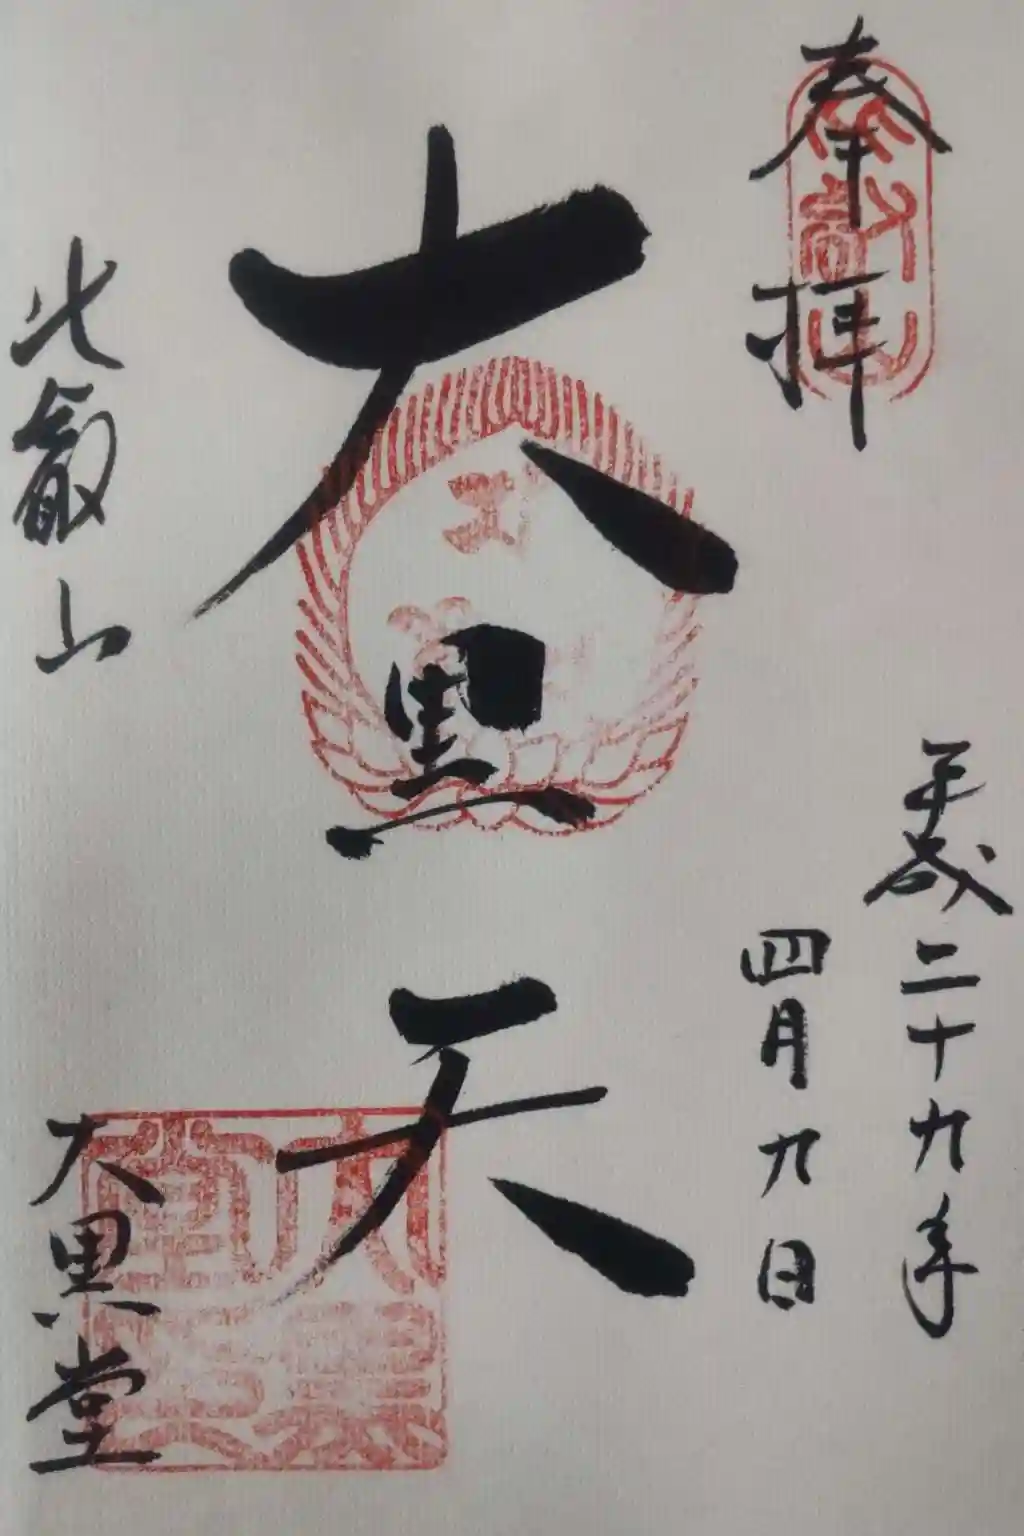 奉拝
平成二十九年
四月九日
大黒天
比叡山
大黒堂